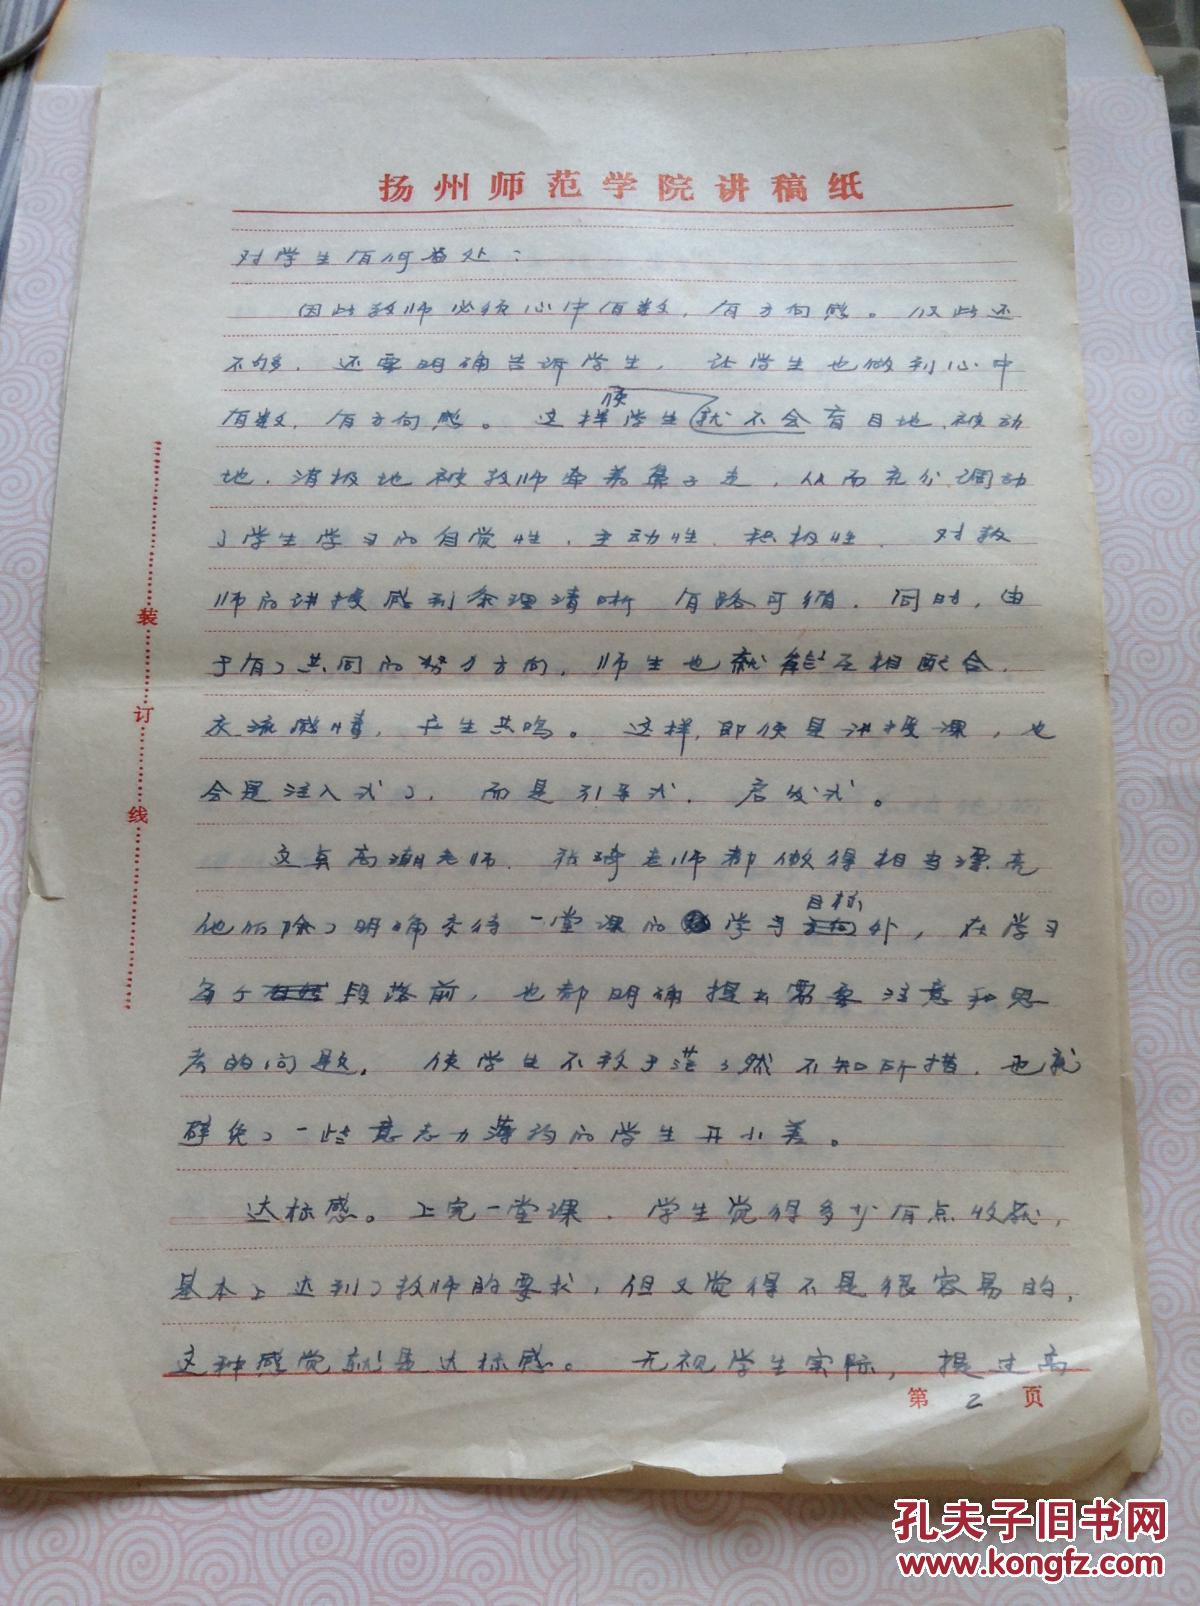 扬州师范学院讲稿纸
对学生有何益处：
因此教师必须心中有数，有方向感。仅此还
不够，还要明确告诉学生，让学生也做到心中
使
有数，有方向感。这样学生就不会盲目地、被动
地、消极地被教师牵着鼻子走，从而充分调动
了学生学习的自觉性、主动性、积极性，对教
师的讲授感到条理清晰 有路可循。同时，由
于有了共同的努力方向，师生也就能互相配合，
交流感情，产生共鸣。这样，即使是讲授课，也
会是注入式了，而是引导式，启发式。
高潮老师、张琦老师都做得相当漂亮
目标
他们除了明确交待一堂课的学习方向外，在学习
每个段落前，也都明确提出需要注意和思
考的问题，使学生不致于茫茫然不知所措，也就
避免了一些意志力薄弱的学生开小差。
达标感。上完一堂课，学生觉得多少有点收获，
基本上达到了教师的要求，但又觉得不是很容易的，
这种感觉就是达标感。无视学生实际，提过高
第 2 页
装
订
线
孔夫子旧书网
www.kongfz.com